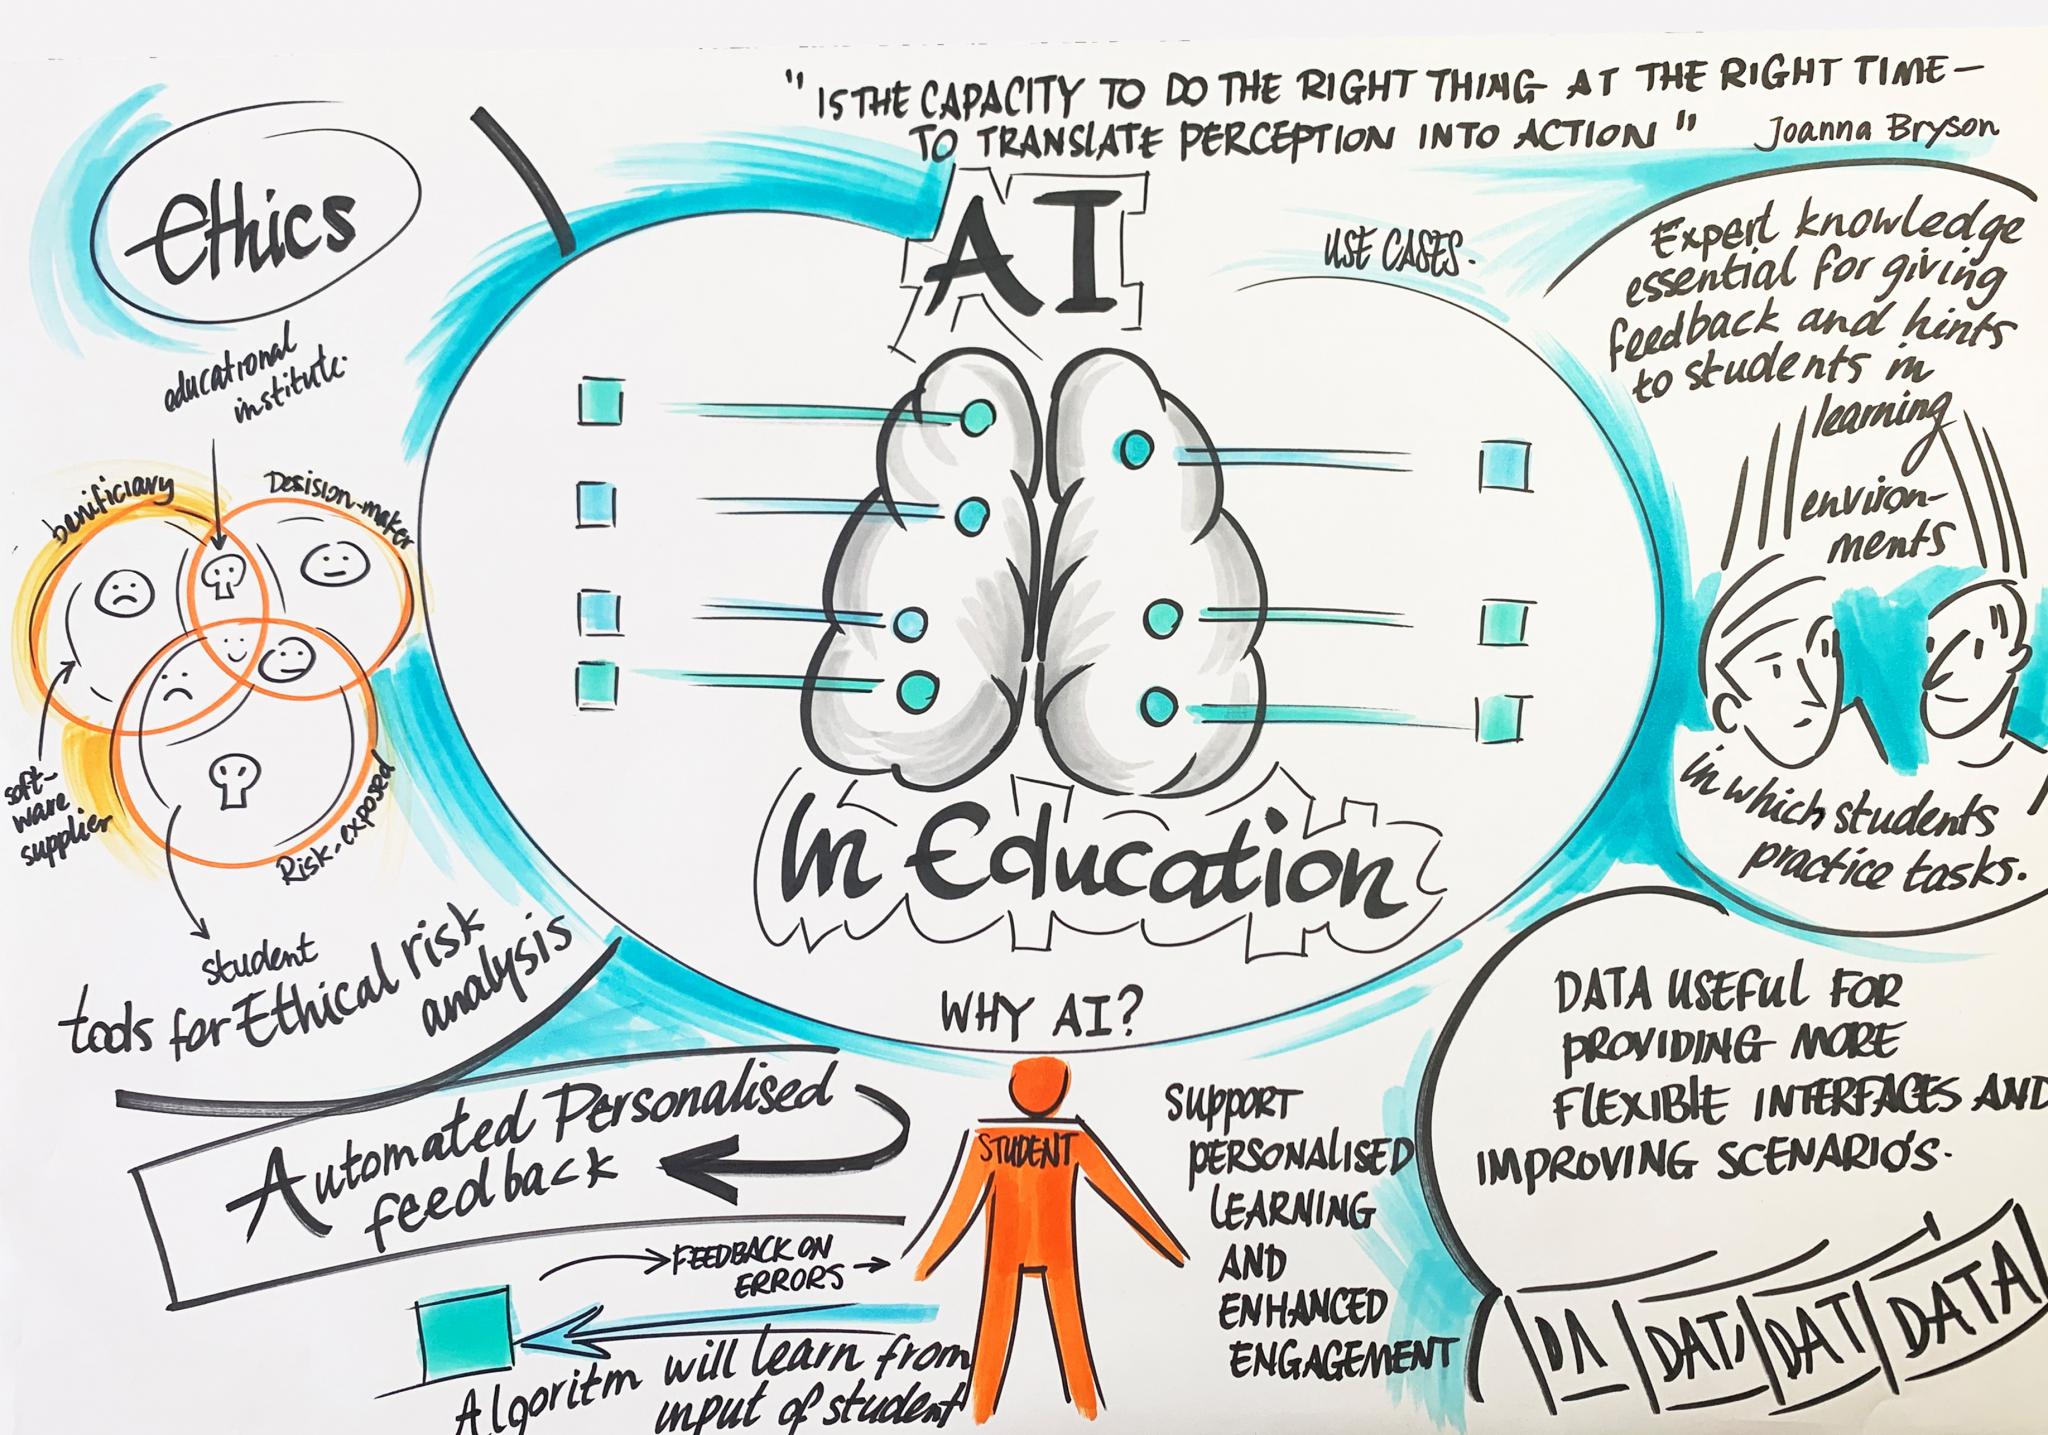 "IS THE CAPACITY TO DO THE RIGHT THING AT THE RIGHT TIME –
TO TRANSLATE PERCEPTION INTO ACTION" Joanna Bryson
Ethics
educational
institute.
benificiary
Desision-maker
soft-
ware
supplier
Risk-exposed
student
tools for Ethical risk
analysis
AI
In Education
USE CASES.
Expert knowledge
essential for giving
feedback and hints
to students in
learning
environ-
ments
in which students
practice tasks.
WHY AI?
Automated Personalised
feedback
FEEDBACK ON
ERRORS
Algoritm will learn from
input of student
STUDENT
SUPPORT
PERSONALISED
LEARNING
AND
ENHANCED
ENGAGEMENT
DATA USEFUL FOR
PROVIDING MORE
FLEXIBLE INTERFACES AND
IMPROVING SCENARIO'S.
DA DAT DAT DATA